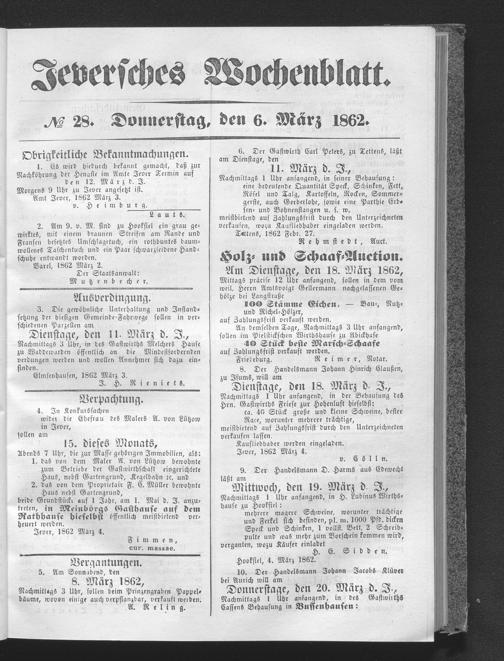 Jeversches Wochenblatt.
№ 28. Donnerstag, den 6. März 1862.
Obrigkeitliche Bekanntmachungen.
1. Es wird hiedurch bekannt gemacht, daß zur
Nachköhrung der Hengste im Amte Jever Termin auf
den 12. März d. J.
Morgens 9 Uhr zu Jever angesetzt ist.
Amt Jever, 1862 März 3.
v. Heimburg.
Lauts.
2. Am 9. v. M. sind zu Hooksiel ein grau ge-
wirktes, mit einem braunen Streifen am Rande und
Fransen besetztes Umschlagetuch, ein rothbuntes baum-
wollenes Taschentuch und ein Paar schwarzseidene Hand-
schuhe entwendet worden.
Varel, 1862 März 2.
Der Staatsanwalt:
Mutzenbecher.
Ausverdingung.
3. Die gewöhnliche Unterhaltung und Instand-
setzung der hiesigen Gemeinde-Fahrwege sollen in ver-
schiedenen Parzellen am
Dienstage, den 11. März d. J.,
Nachmittags 3 Uhr, in des Gastwirths Melchert Hause
zu Waddewarden öffentlich an die Mindestfordernden
verdungen werden und wollen Annehmer sich dazu ein-
finden.
Elmsenhausen, 1862 März 3.
J. H. Rieniets.
Verpachtung.
4. In Konkurssachen
wider die Ehefrau des Malers A. von Lützow
in Jever,
sollen am
15. dieses Monats,
Abends 7 Uhr, die zur Masse gehörigen Immobilien, als:
1. das von dem Maler A. von Lützow bewohnte
zum Betriebe der Gastwirthschaft eingerichtete
Haus, nebst Gartengrund, Kegelbahn &c. und
2. das von dem Proprietair F. C. Müller bewohnte
Haus nebst Gartengrund,
beide Grundstücke auf 1 Jahr, am 1. Mai d. J. anzu-
treten, in Meinbörgs Gasthause auf dem
Rathhause hieselbst öffentlich meistbietend ver-
heuert werden.
Jever, 1862 März 4.
Fimmen,
cur. massae.
Vergantungen.
5. Am Sonnabend, den
8. März 1862,
Nachmittags 3 Uhr, sollen beim Prinzengraben Pappel-
bäume, wovon einige auch verpflanzbar, verkauft werden.
A. Reling.
6. Der Gastwirth Carl Peters, zu Tettens, läßt
am Dienstage, den
11. März d. J.,
Nachmittags 1 Uhr anfangend, in seiner Behausung:
eine bedeutende Quantität Speck, Schinken, Fett,
Rösel und Talg, Kartoffeln, Knollen, Tische,
Särge, Garderloorde, sowie eine Parthie Erb-
sen- und Bohnenstangen u. s. w.
meistbietend auf Zahlungsfrist durch den Unterzeichneten
verkaufen, wozu Kaufliebhaber eingeladen werden.
Tettens, 1862 Febr. 27.
Rehmstedt, Auct.
Holz- und Schaaf-Auction.
Am Dienstage, den 18. März 1862,
Mittags präcise 12 Uhr anfangend, sollen in dem vom
weil. Herrn Amtsvogt Gellermann nachgelassenen Ge-
hölze bei Langstraße
100 Stämme Eichen, — Bau-, Nutz-
und Richel-Hölzer,
auf Zahlungsfrist verkauft werden.
An demselben Tage, Nachmittags 3 Uhr anfangend,
sollen im Wirthshause zu Abickhafe
40 Stück beste Marsch-Schaafe
auf Zahlungsfrist verkauft werden.
Friedeburg. Reimer, Notar.
8. Der Handelsmann Johann Hinrich Claußen,
zu Isums, will am
Dienstage, den 18. März d. J.,
Nachmittags 1 Uhr anfangend, in der Behausung des
Hrn. Gastwirths Friese zur Hohenlust hieselbst:
ca. 40 Stück große und kleine Schweine, bester
Race, worunter mehrere trächtige,
meistbietend auf Zahlungsfrist durch den Unterzeichneten
verkaufen lassen.
Kaufliebhaber werden eingeladen.
Jever, 1862 März 4.
v. Cölln.
9. Der Handelsmann D. Harms aus Edewecht
läßt am
Mittwoch, den 19. März d. J.,
Nachmittags 1 Uhr anfangend, in H. Ladinus Wirths-
hause zu Hooksiel:
mehrere magere Schweine, worunter trächtige
und Ferkel sich befinden, pl. m. 1000 Pfd. dicken
Speck und Schinken, 1 vollst. Bett, 2 Schreib-
pulte und was mehr zum Vorschein kommen wird,
verganten, wozu Käufer einladet
H. E. Sidden.
Hooksiel, 4. März 1862.
10. Der Handelsmann Johann Jacobs Klüver
bei Aurich will am
Donnerstage, den 20. März d. J.,
Nachmittags 1 Uhr anfangend, in des Gastwirths
Gassens Behausung in Bussenhausen: